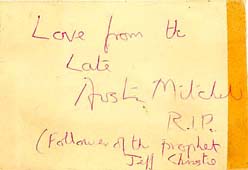 Love from the
Late
Austin Mitchell
R.I.P.
(Follower of the prophet
Jeff Christie